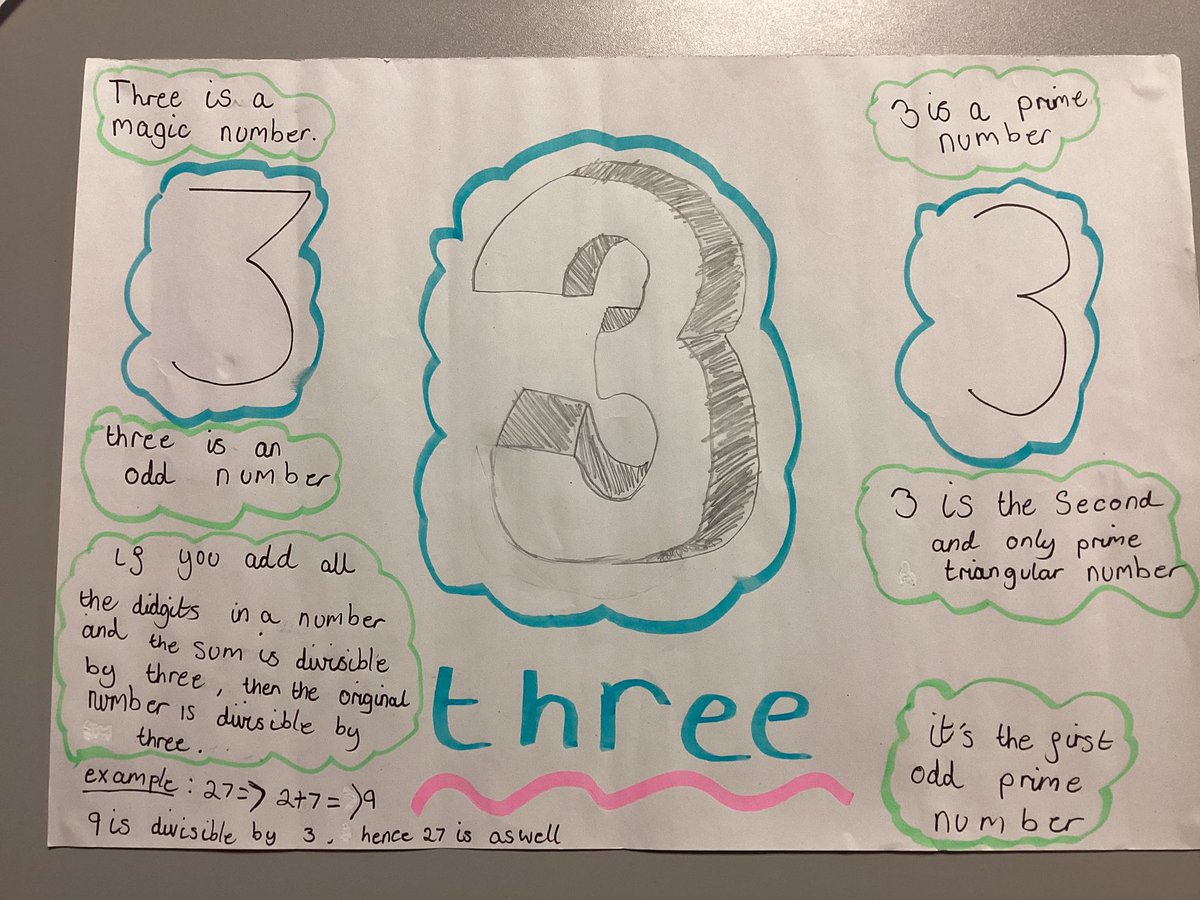 Three is a
magic number.
3
three is an
odd number
if you add all
the didgits in a number
and the sum is divisible
by three, then the original
number is divisible by
three.
example : 27=> 2+7=>9
9 is divisible by 3. hence 27 is aswell
3
three
3 is a prime
number
3
3 is the Second
and only prime
triangular number
it's the first
odd prime
number